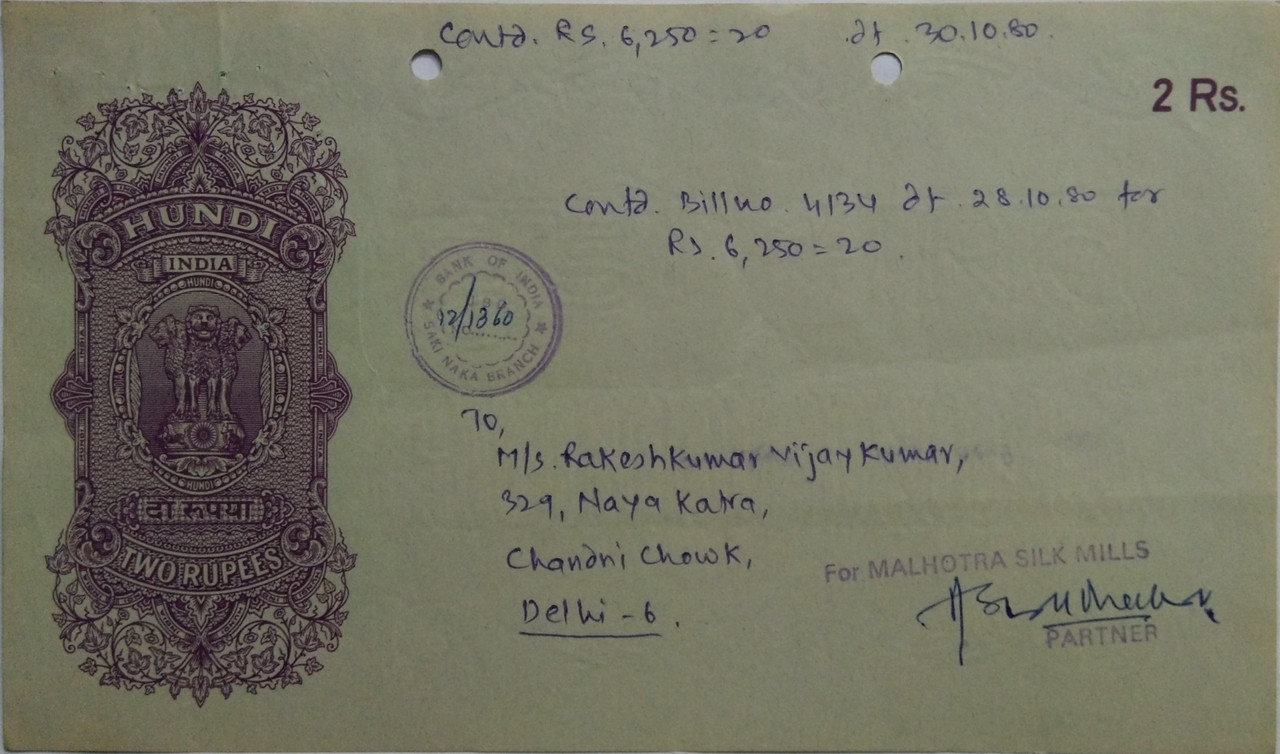 Contd. Rs. 6,250=20 dt. 30.10.80.
2 Rs.
HUNDI
INDIA
HUNDI
HUNDI
दो रुपया
TWO RUPEES
Contd. Bill no. 4134 dt. 28.10.80 for
Rs. 6,250=20.
BANK OF INDIA
12/1360
SAKI NAKA BRANCH
To,
M/s. Rakeshkumar Vijaykumar,
329, Naya Katra,
Chandni Chowk,
Delhi-6.
For MALHOTRA SILK MILLS
PARTNER